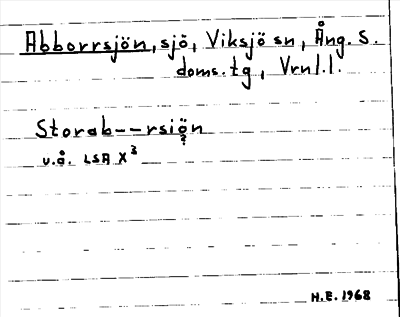 Abborrsjön, sjö, Viksjö sn, Ång. S.
doms.tg, Vrnl.l.
Storab--rsiön
?
u.å. LSA X³
H.E. 1968